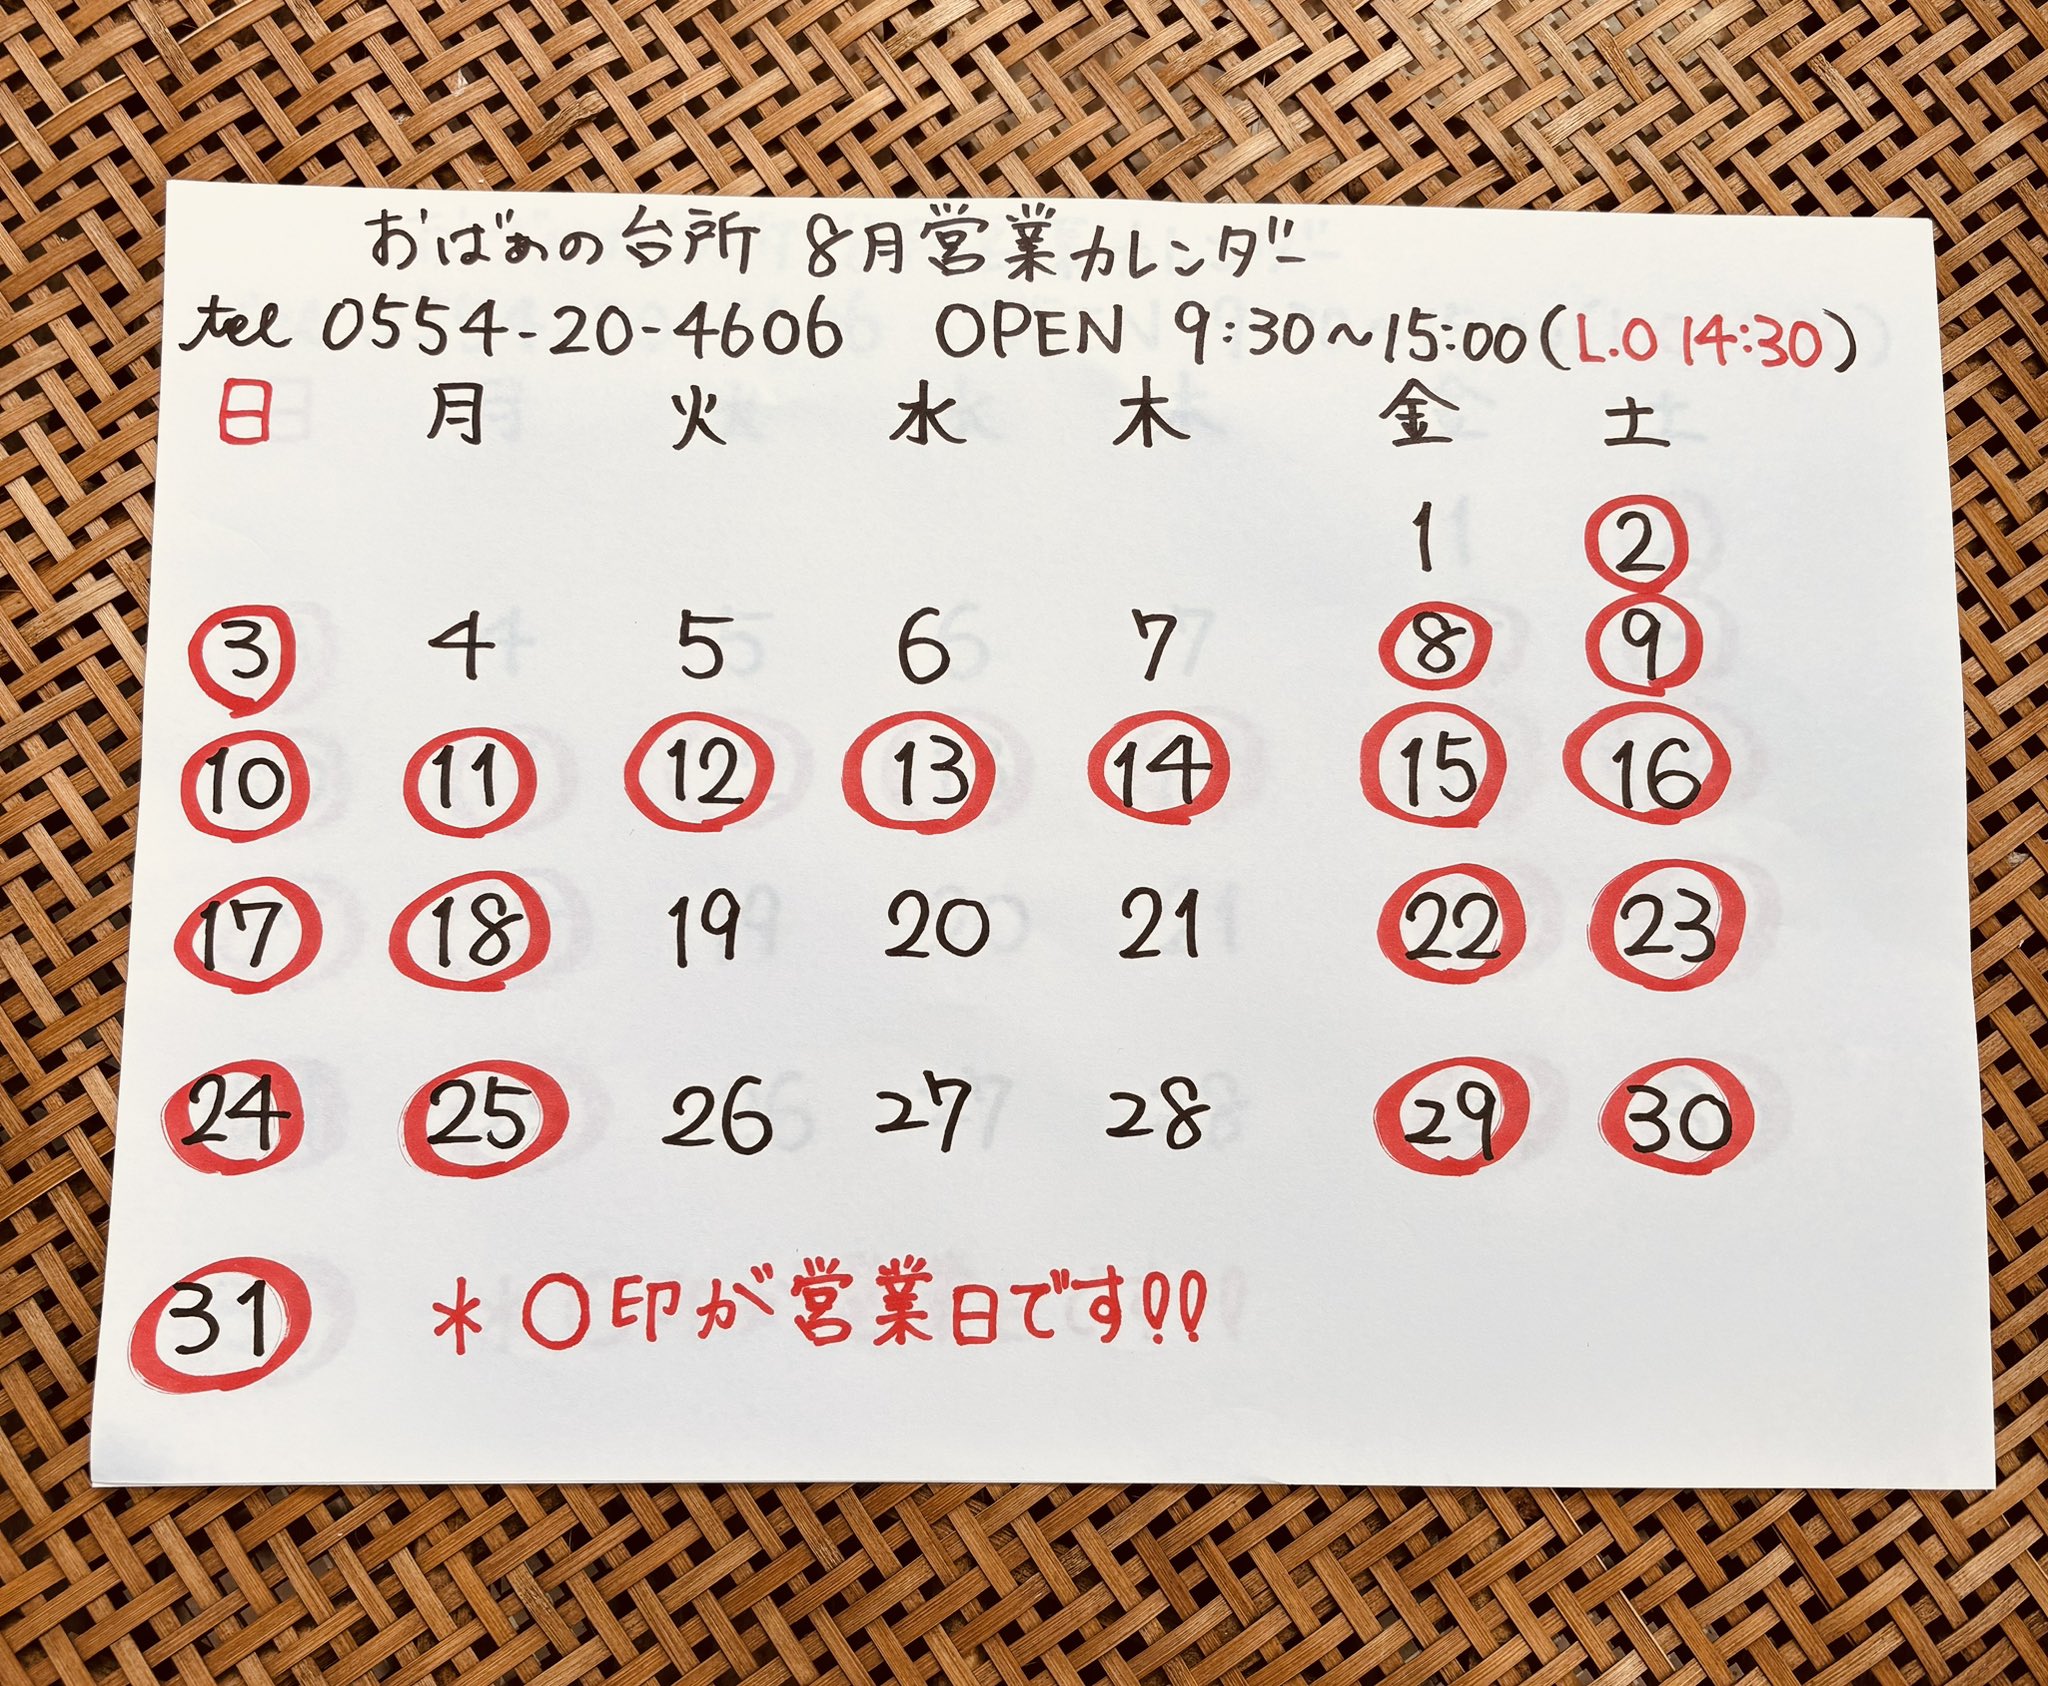 おばぁの台所 8月営業カレンダー
tel 0554-20-4606 OPEN 9:30~15:00(L.O 14:30)
日 月 火 水 木 金 土
1 2
3 4 5 6 7 8 9
10 11 12 13 14 15 16
17 18 19 20 21 22 23
24 25 26 27 28 29 30
31 *〇印が営業日です!!